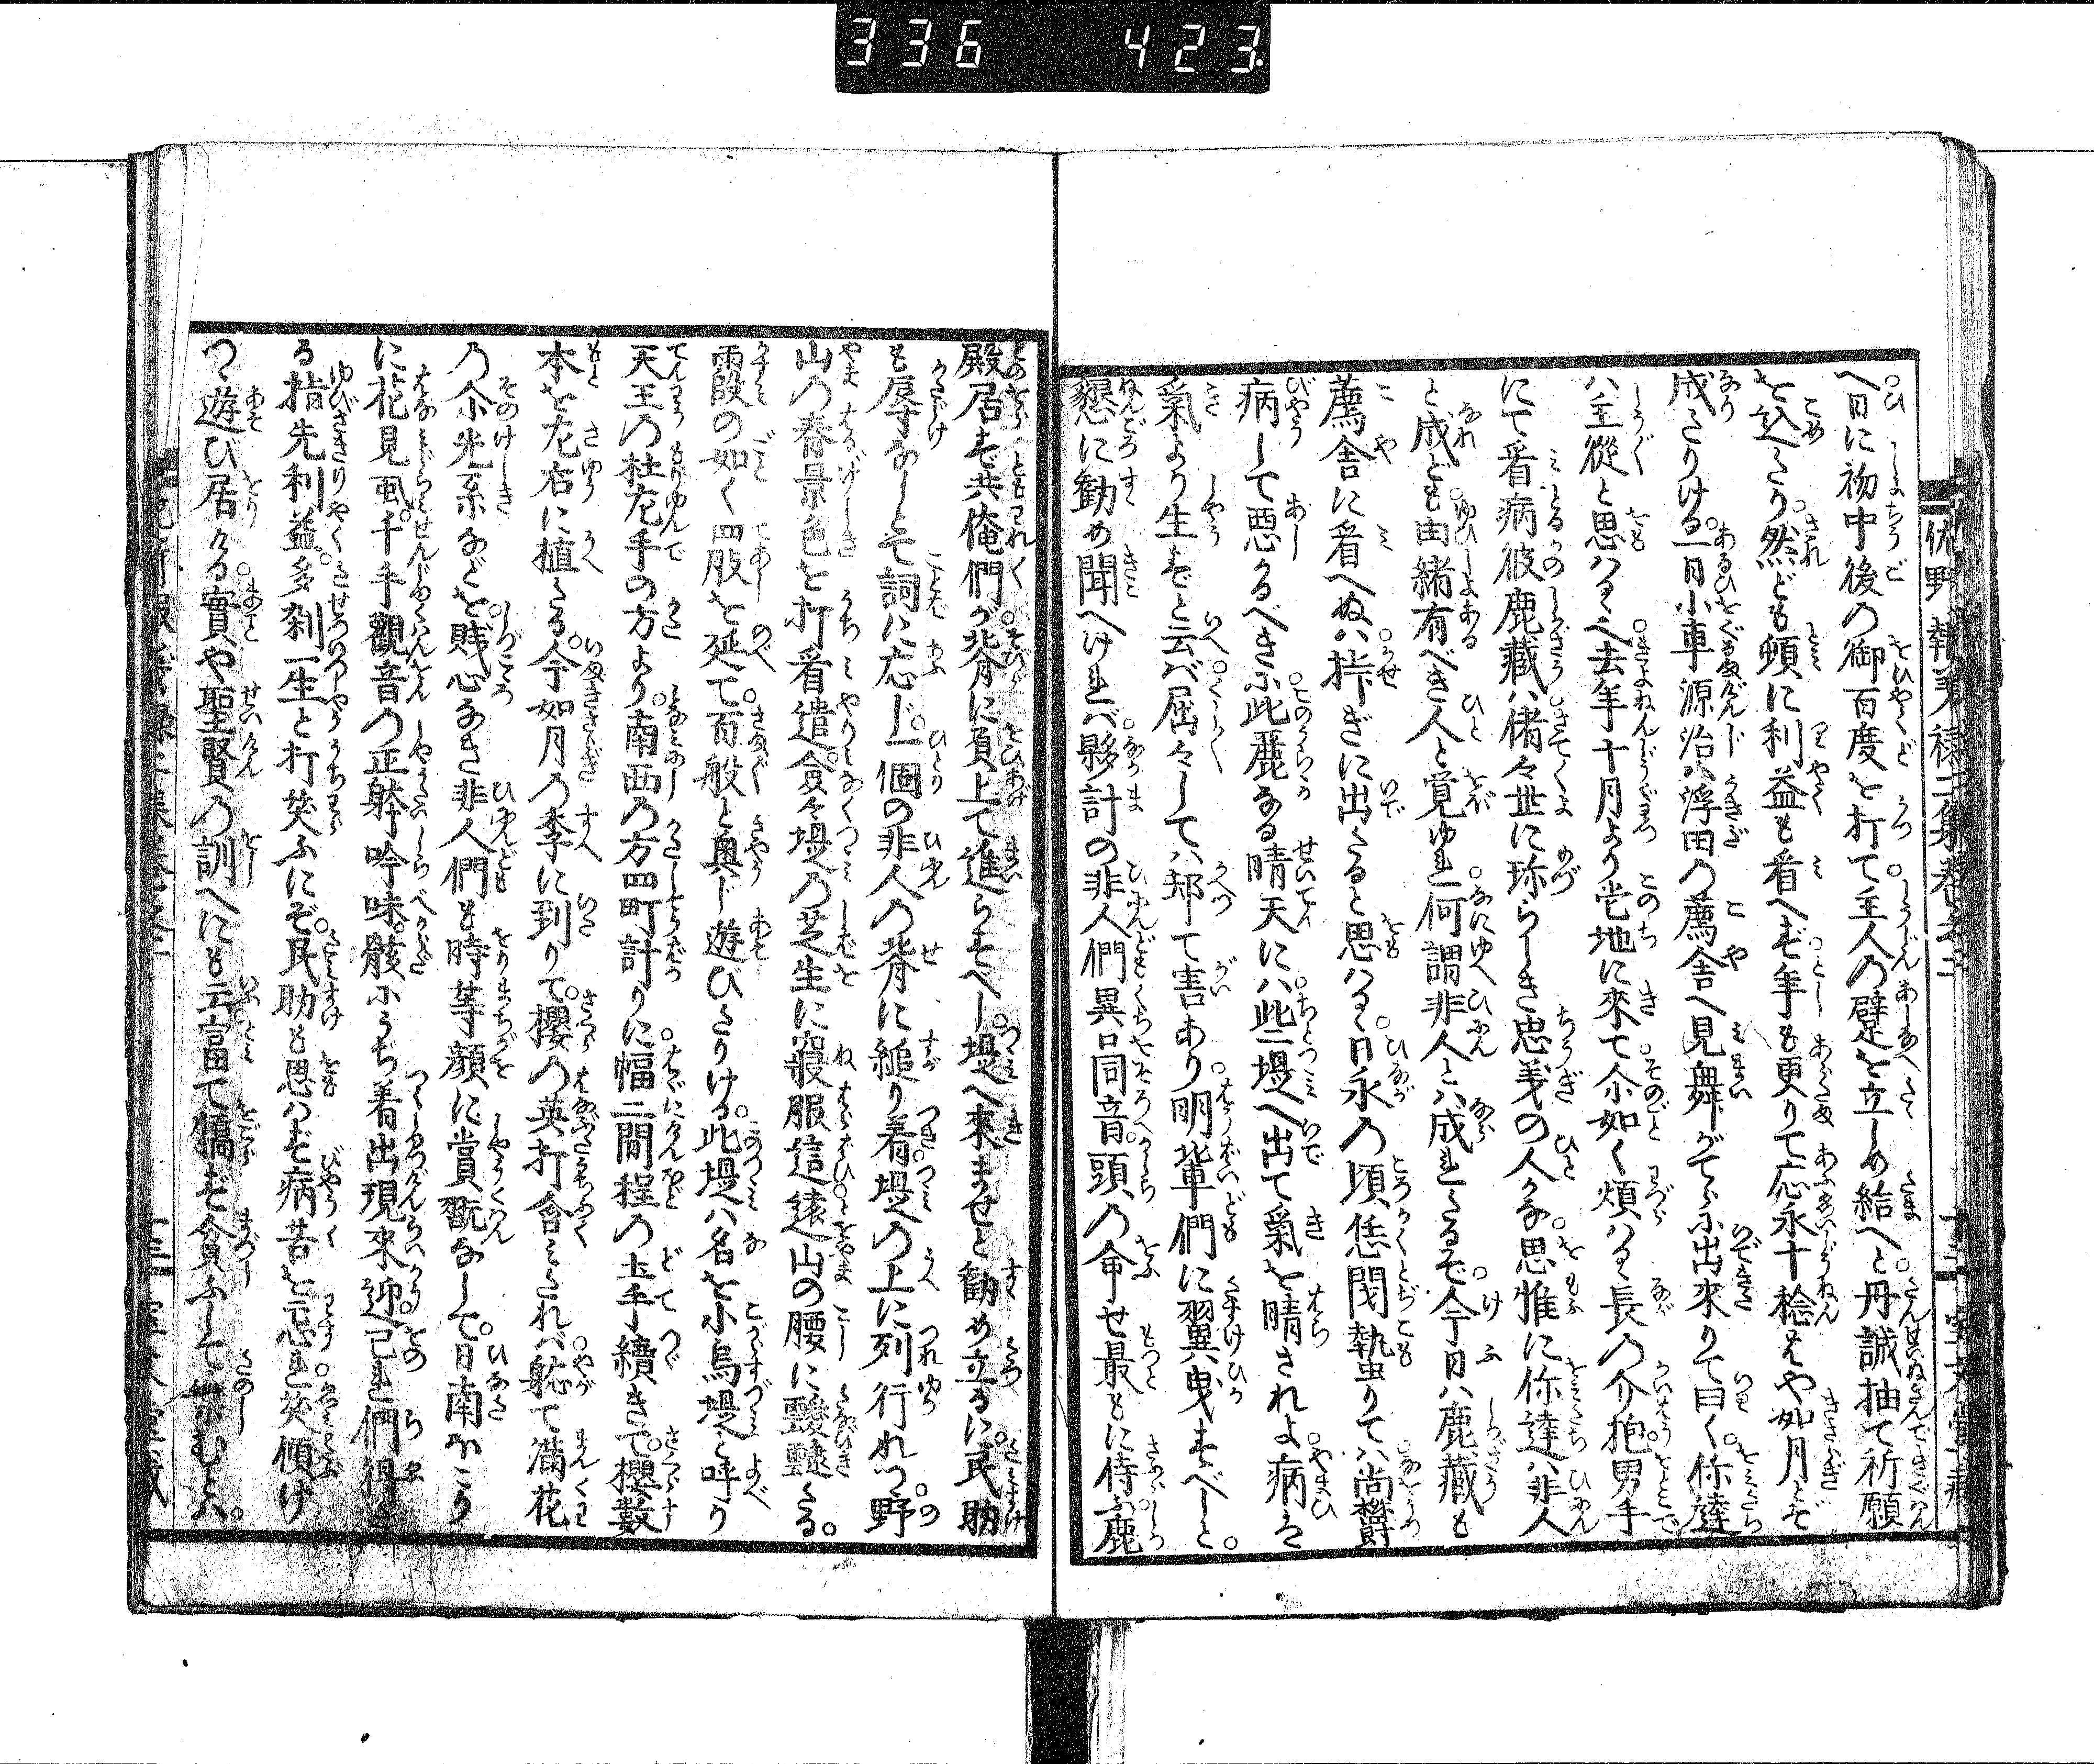 336 423
へ日に初中後の御百度を打て主人の躄を立しめ給へと丹誠抽て祈願
を込たり然ども頓に利益も看へず年も更りて応永十稔はや如月とぞ
成たりける一日小車源治ハ浮田の薦舎へ見舞がてら出來りて曰く你達
ハ主從と思ハるゝ去年十月より當地に來て尒如く煩ハる長の介抱男手
にて看病彼鹿藏ハ偖々世に珎らしき忠義の人かな思惟に你達ハ非人
と成ども由緒有べき人と覚ゆれ何謂非人とハ成れたるぞ今日ハ鹿藏も
薦舎に看へぬハ拤ぎに出たると思ハるゝ日永の頃恁閡蟄りてハ尚欝
病して悪かるべきに此麗なる晴天にハ些堤へ出て氣を晴されよ病は
氣より生ずと云ば屈々してハ却て害あり明輩們に翼曳すべしと。
懇に勧め聞へけれバ夥計の非人們異口同音。頭の命せ最もに侍ふ鹿
殿居ず共俺們が背に負上て進らすべし。堤へ來ませと勧め立るに。民助
も辱なしとて詞に応じ。一個の非人の背に縋り着。堤の上に列行れつ。野
山の春景色を打看遣。僉々堤の芝生に寢服這。遠山の腰に靉靆たる。
霞の如く四股を延て。百般と興じ遊びたりける。此堤ハ名を小烏堤と呼り
天王の杜左手の方より。南西の方四町計りに幅二間程の土手續きで。櫻数
本を左右に植たる。今如月の季に到りて。櫻の英打含みたれバ。軈て満花
の尒光系などを。賎心なき非人們も時等顔に賞翫なして。日南ぼこり
に花見虱。千手觀音の正躰吟味。骸にうぢ着出現來迎。己れ們得と
る指先利益。多刹一生と打笑ふにぞ。民助も思ハず病苦を忘れ笑傾け
つゝ遊び居ける。實や聖賢の訓へにも云富て驕ず貧ふして樂むとハ。